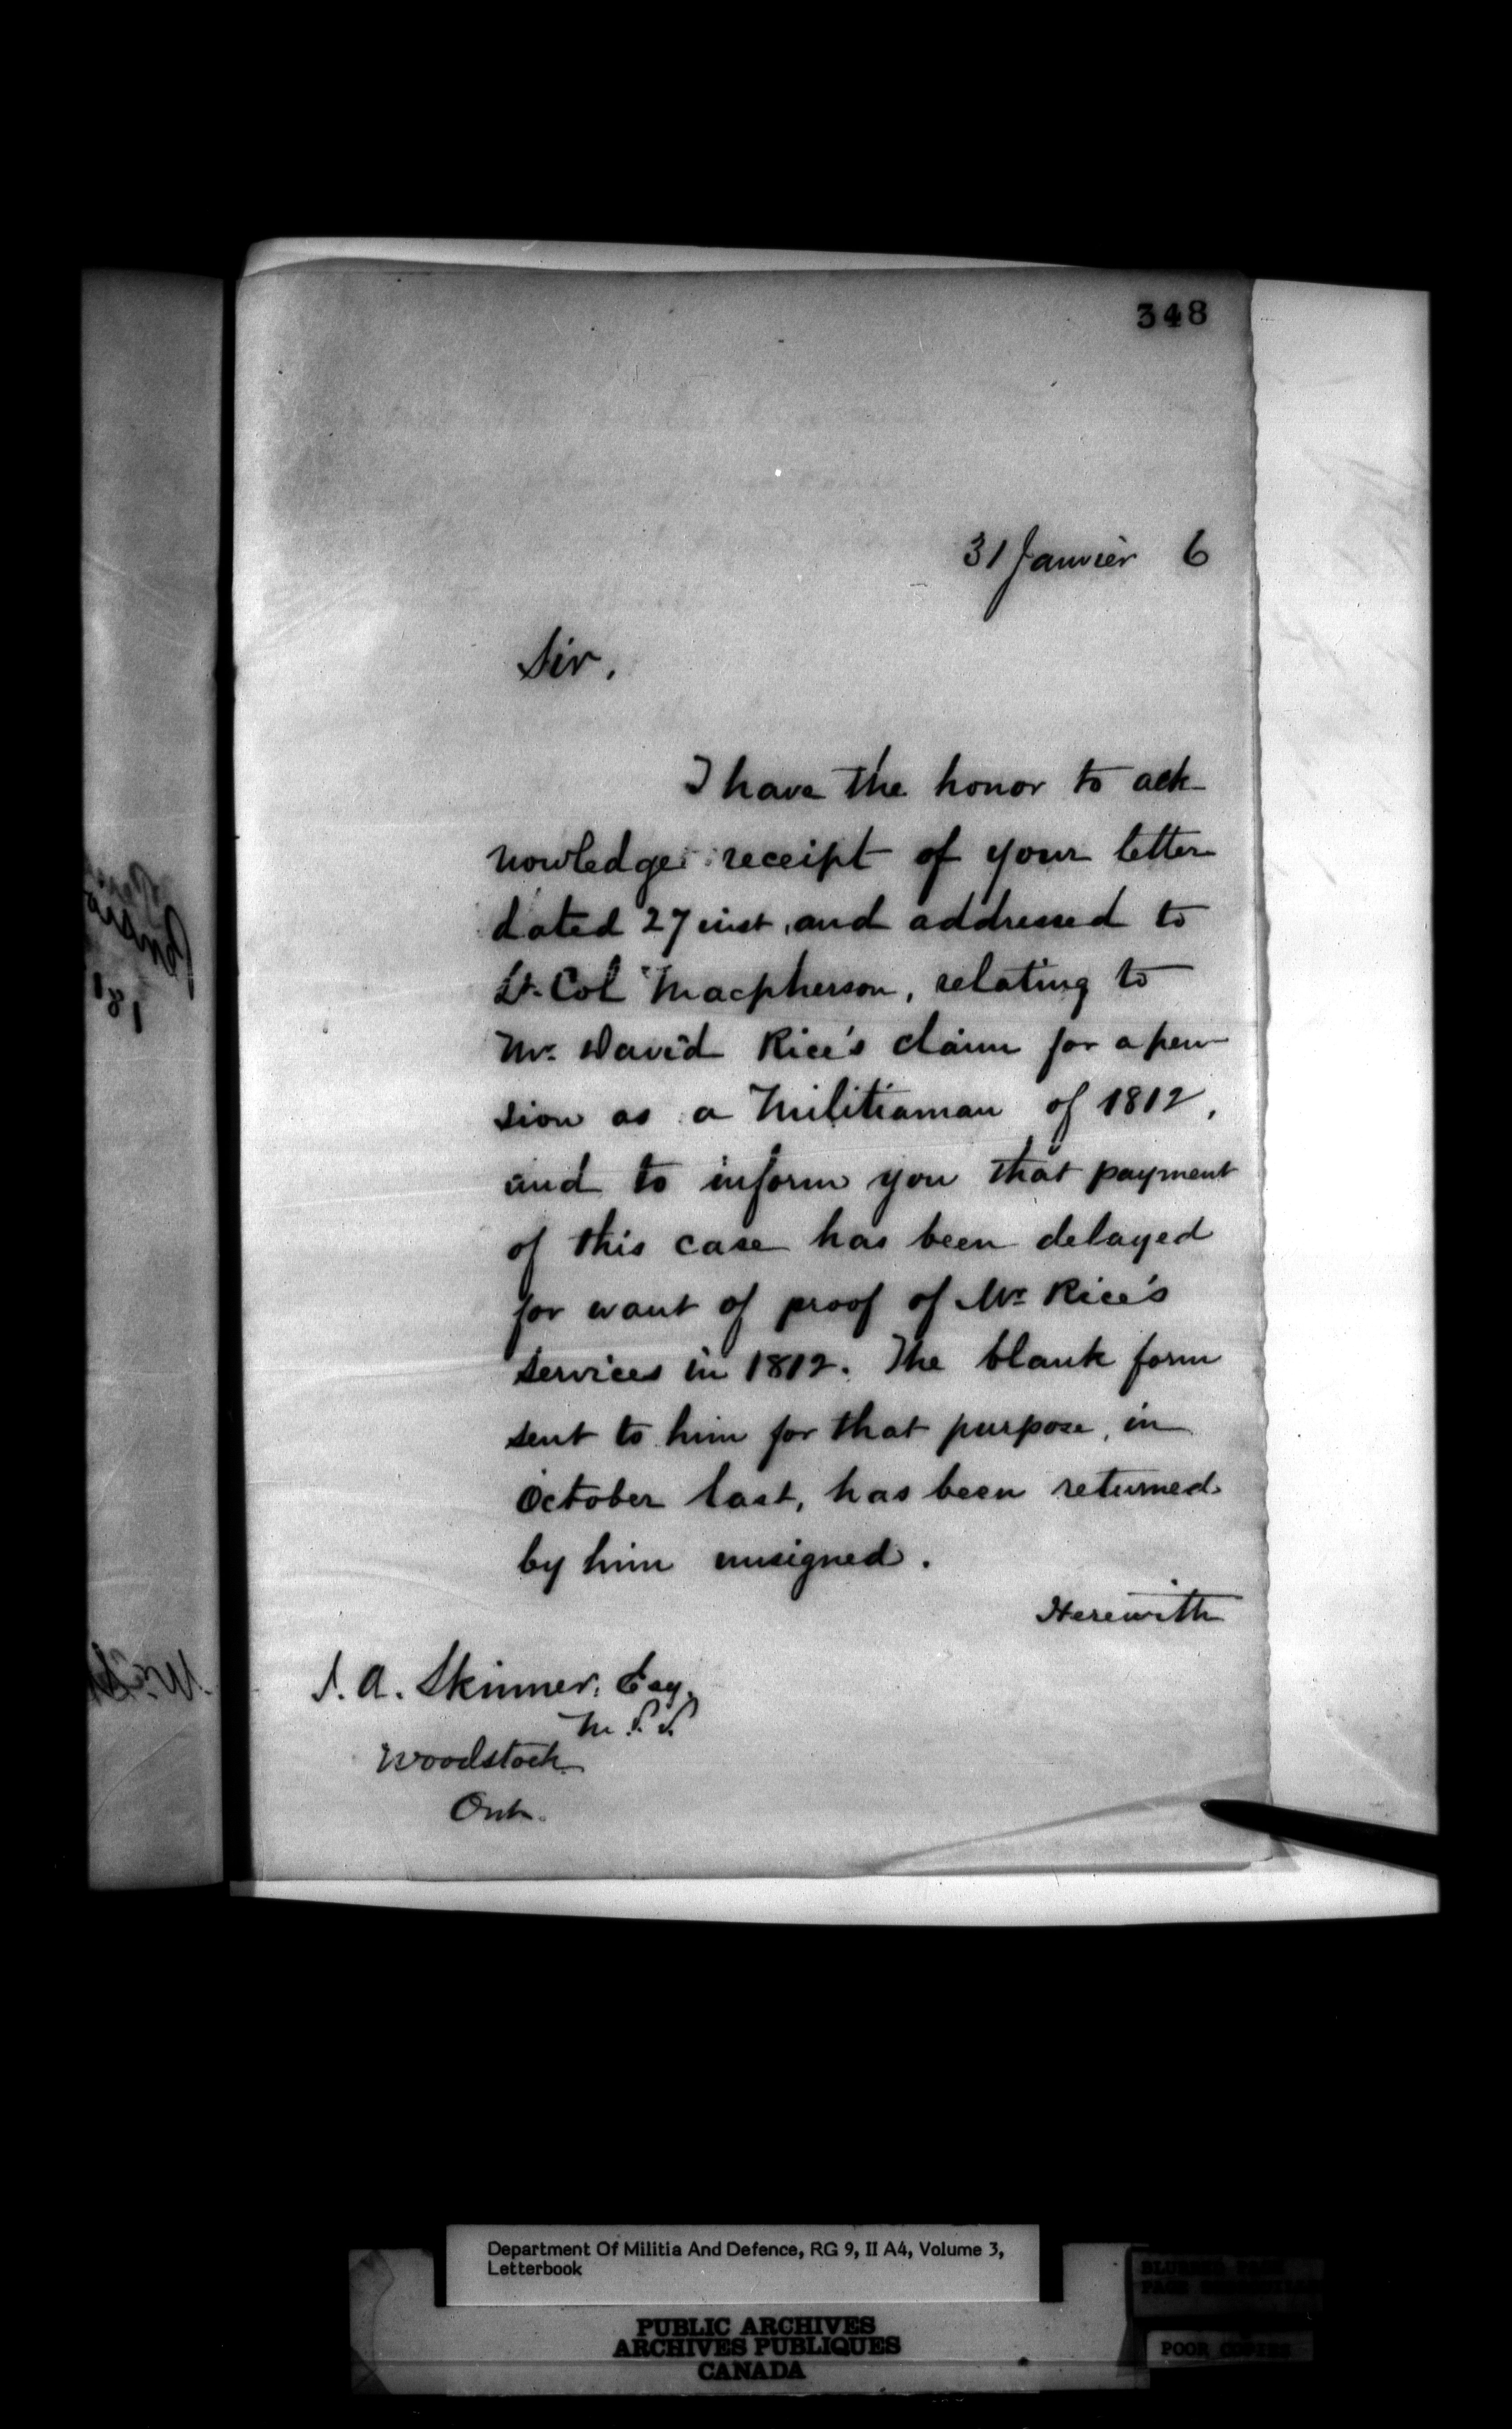 348
31 Janvier 6
Sir,
I have the honor to ack-
nowledge receipt of your letter
dated 27 inst, and addressed to
Lt. Col Macpherson, relating to
Mr. David Rice's claim for a pen-
sion as a Militiaman of 1812,
and to inform you that payment
of this case has been delayed
for want of proof of Mr Rice's
services in 1812. The blank form
sent to him for that purpose, in
October last, has been returned
by him unsigned.
Herewith
J. A. Skinner, Esq.
M.P.P.
Woodstock
Ont.
Department Of Militia And Defence, RG 9, II A4, Volume 3,
Letterbook
PUBLIC ARCHIVES
ARCHIVES PUBLIQUES
CANADA
POOR COPIES